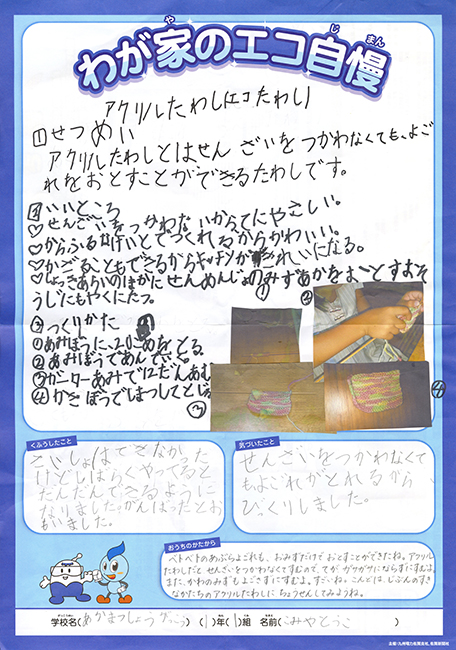 わが家のエコ自慢
や
じ まん
アクリルたわし(エコたわし)
①せつめい
アクリルたわしとはせんざいをつかわなくても、よご
れをおとすことができるたわしです。
②いいところ
♡せんざいをつかわないからてにやさしい。
♡からふるなけいとでつくれるからかわいい。
♡かざることもできるからキッチンがきれいになる。
♡しょっきあらいのほかにせんめんじょのみずあかをおとすおそ
うじにもやくにたつ。
③つくりかた
①あみぼうに、20こめをとる
②あみぼうであんでいく
③ガーターあみで12だんあむ
④かぎぼうでしまつしてとじる
① ② ③ ④
くふうしたこと
さいしょはできなかった
けどしばらくやってると
だんだんできるように
なりました。がんばったとお
もいました。
気づいたこと
せんざいをつかわなくて
もよごれがとれるから
びっくりしました。
おうちのかたから
ベトベトのあぶらよごれも、おみずだけでおとすことができたね。アクリル
たわしだと せんざいをつかわなくてすむので、てが ガサガサにならずにすむよ。
また、かわのみずもよごさずにすむよ。すごいね。こんどは、じぶんのすき
なかたちのアクリルたわしに ちょうせんしてみようね。
学校名(あかまつしょうがっこう) (1)年(1)組 名前(こみやとうこ)
主催/九州電力佐賀支社、佐賀新聞社